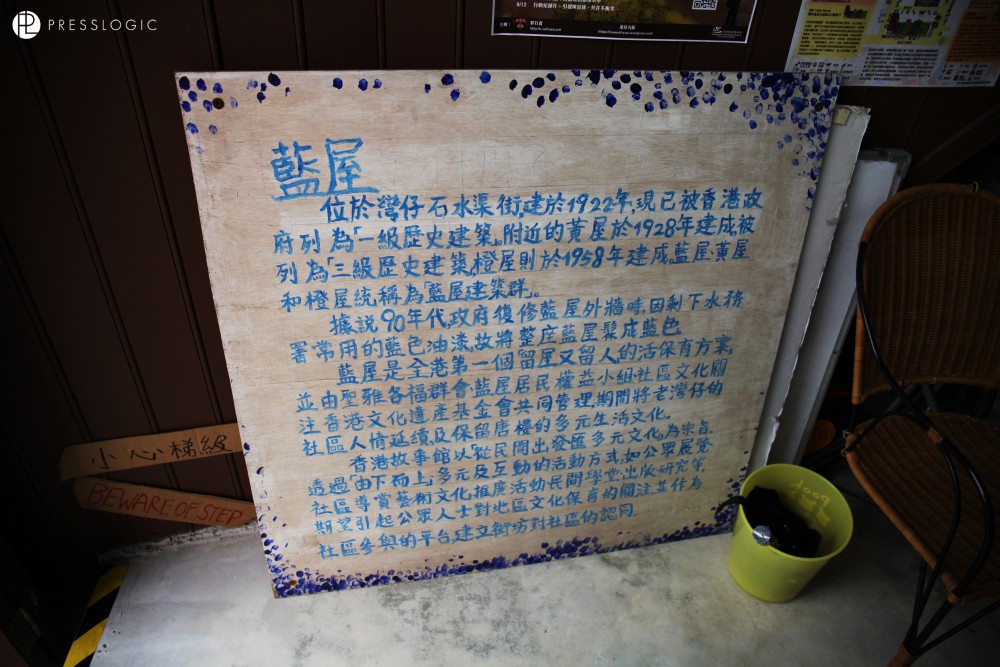 PRESSLOGIC
藍屋
位於灣仔石水渠街,建於1922年,現已被香港政
府列為「一級歷史建築」。附近的黃屋於1928年建成,被
列為「三級歷史建築」,橙屋則於1958年建成,藍屋、黃屋
和橙屋統稱為「藍屋建築群」。
據說90年代,政府復修藍屋外牆時,因剩下水務
署常用的藍色油漆,故將整座藍屋髹成藍色
藍屋是全港第一個留屋又留人的活保育方案,
並由聖雅各福群會藍屋居民權益小組社區文化關
注香港文化遺產基金會共同管理期間將老灣仔的
社區人情延續及保留唐樓的多元生活文化。
香港故事館以從民間出發匯多元文化,為宗旨,
透過「由下而上」,多元及互動的活動方式,如公眾展覽
社區導賞藝術文化推廣活動民間學堂出版研究等,
期望引起公眾人士對地區文化保育的關注並作為
社區參與的平台建立街坊對社區的認同
小心梯級
BEWARE OF STEP